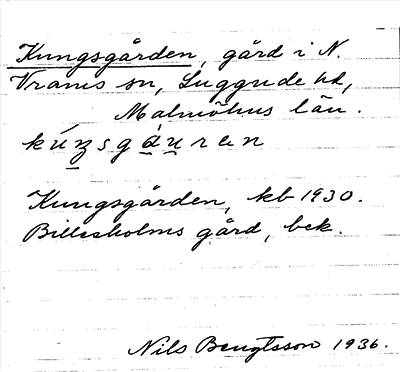 Kungsgården, gård i N.
Vrams sn, Luggude hd,
Malmöhus län.
kúŋsgáu̯rən
Kungsgården, kb 1930.
Billesholms gård, bek.
Nils Bengtsson 1936.